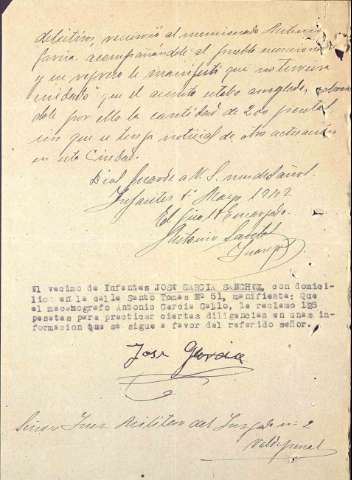 detectives, recurrió al mencionado Antonio
García acompañándole al pueblo
y en regreso le manifestó que no tuviera
cuidado que el asunto estaba arreglado,
dole por ello la cantidad de 200 pesetas
sin que se tenga noticias de otra actuación
en esta Ciudad.
Dios guarde a V. S. muchos años.
Infantes 1º Marzo 1942
El
Antonio
El vecino de Infantes JOSE GARCIA SANCHEZ, con domici-
lio en la calle Santo Tomas Nº 51, manifiesta: Que
el mecanografo Antonio Garcia Gallo, le reclamo 125
pesetas para practicar ciertas diligencias en unas in-
formacion que se sigue a favor del referido señor.
Jose Garcia
Señor Juez Militar del Juzgado nº 2